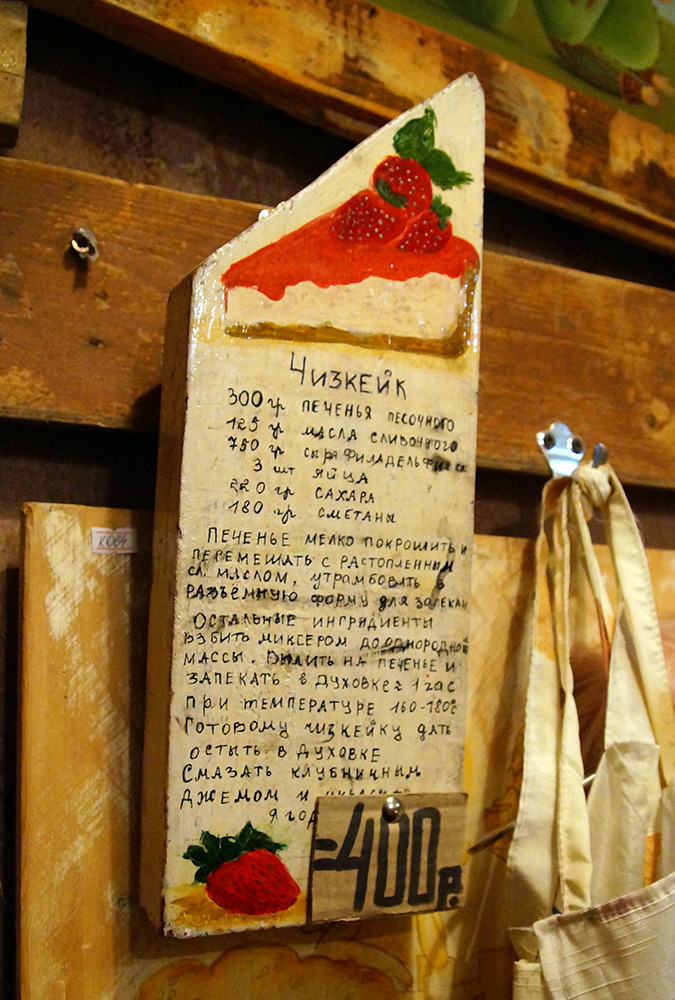 Чизкейк
300 гр печенья песочного
125 гр масла сливочного
750 гр сыра Филадельфия
3 шт яйца
220 гр сахара
180 гр сметаны
Печенье мелко покрошить и
перемешать с растопленным
сл. маслом, утрамбовать в
разъёмную форму для запекан
Остальные ингридиенты
взбить миксером до однородной
массы. Вылить на печенье и
запекать в духовке ≈ 1 час
при температуре 160-180°
Готовому чизкейку дать
остыть в духовке
Смазать клубничным
джемом и
ягод
=400р.
К064